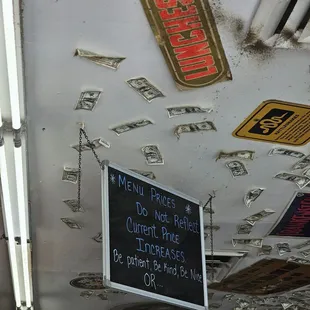 WINCHESTER
* MENU PRICES *
Do Not Reflect
Current Price
INCREASES
Be patient, Be Kind, Be Nice
OR...